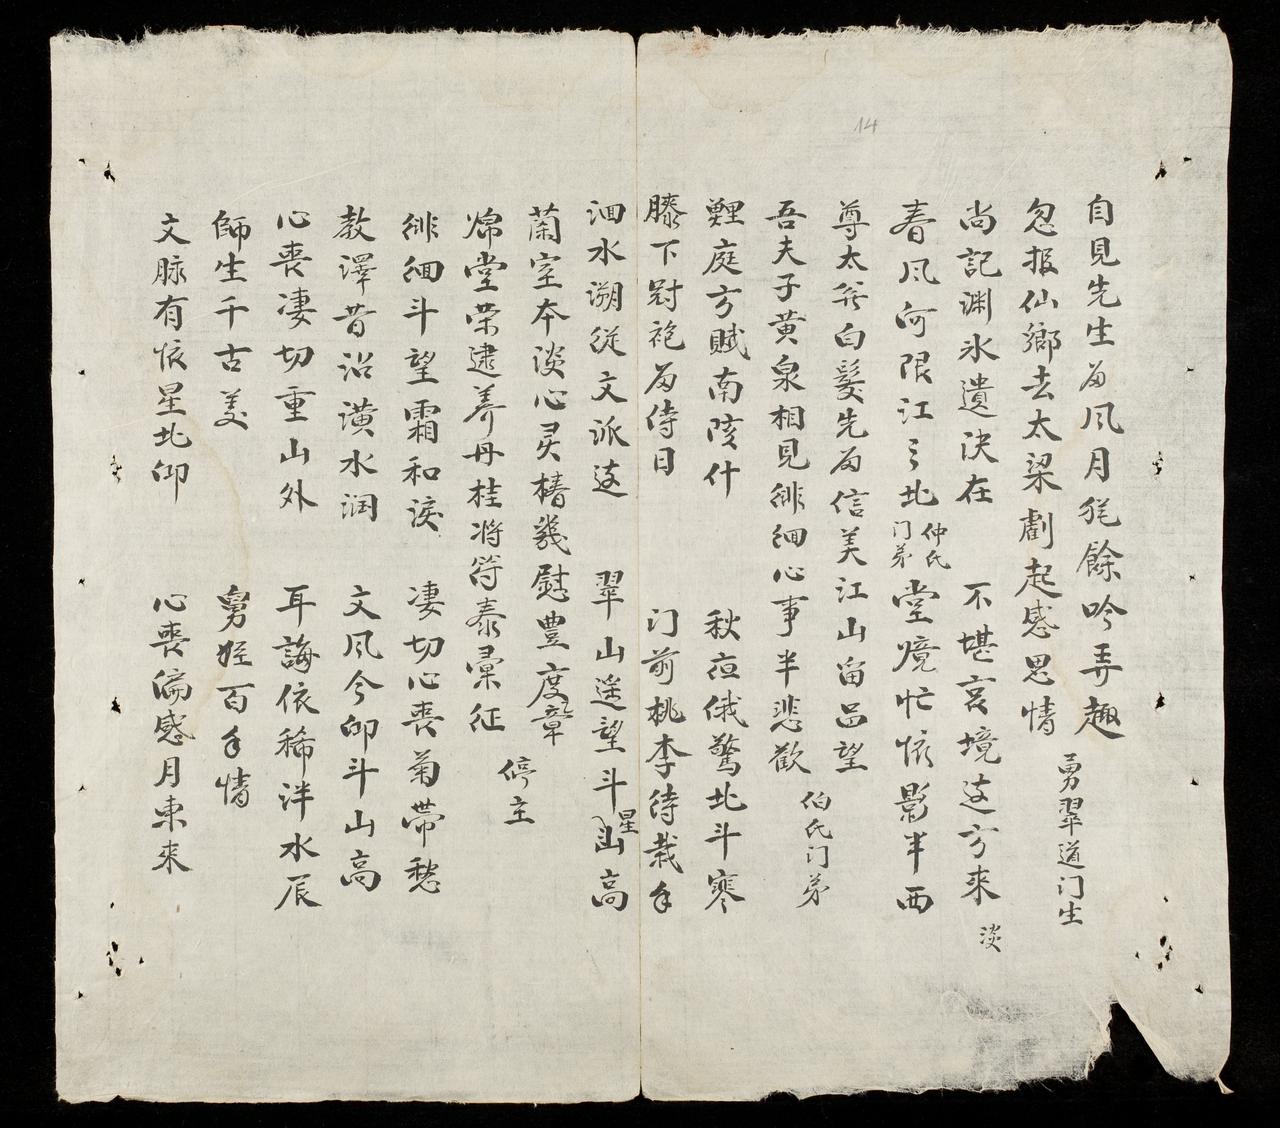 自見先生為风月㲋餘吟弄趣
忽报仙鄉去太梁劇起感思情 勇翠道门生
尚記渊氷遺决在 不堪哀境这方来 淡
春风何限江之北 仲氏门弟 堂境忙惊影半西
尊太爷白髮先為信美江山畄面望
吾夫子黄泉相見徘徊心事半悲歡 伯氏门弟
鲤庭方賦南陔什 秋夜俄驚北斗寒
膝下尉袍為侍日 门前桃李待栽手
洄水溯従文派这 翠山遥望斗星山高
蘭室本淡心灵椿幾慰豊度章
煒堂荣逮养丹桂将符泰彙征 停主
徘徊斗望霜和淚 凄切心喪菊帶愁
教澤昔沾潢水润 文风今仰斗山高
心喪凄切重山外 耳誨依稀泮水辰
師生千古美 舅姪百年情
文脉有依星北仰 心喪偏感月東来
14